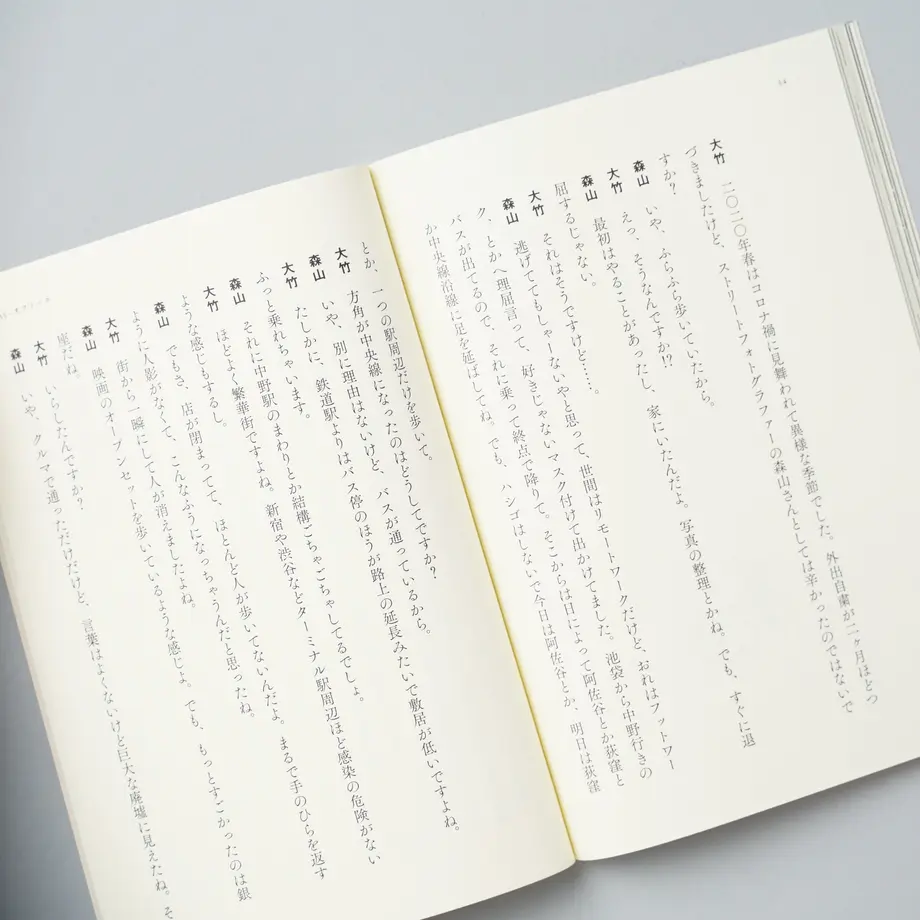 大竹　二〇二〇年春はコロナ禍に見舞われて異様な季節でした。外出自粛が二ヶ月ほどつ
づきましたけど、ストリートフォトグラファーの森山さんとしては辛かったのではないで
すか？
森山　いや、ふらふら歩いていたから。
大竹　えっ、そうなんですか!?
森山　最初はやることがあったし、家にいたんだよ。写真の整理とかね。でも、すぐに退
屈するじゃない。
大竹　それはそうですけど……。
森山　逃げててもしゃーないやと思って、世間はリモートワークだけど、おれはフットワー
ク、とかへ理屈言って、好きじゃないマスク付けて出かけてました。池袋から中野行きの
バスが出てるので、それに乗って終点で降りて。そこからは日によって阿佐谷とか荻窪と
か中央線沿線に足を延ばしてね。でも、ハシゴはしないで今日は阿佐谷とか、明日は荻窪
とか、一つの駅周辺だけを歩いて。
大竹　方角が中央線になったのはどうしてですか？
森山　いや、別に理由はないけど、バスが通っているから。
大竹　たしかに、鉄道駅よりはバス停のほうが路上の延長みたいで敷居が低いですよね。
ふっと乗れちゃいます。
森山　それに中野駅のまわりとか結構ごちゃごちゃしてるでしょ。
大竹　ほどよく繁華街ですよね。新宿や渋谷などターミナル駅周辺ほど感染の危険がない
ような感じもするし。
森山　でもさ、店が閉まってて、ほとんど人が歩いてないんだよ。まるで手のひらを返す
ように人影がなくて、こんなふうになっちゃうんだと思ったね。
大竹　街から一瞬にして人が消えましたよね。
森山　映画のオープンセットを歩いているような感じよ。でも、もっとすごかったのは銀
座だね。
大竹　いらしたんですか？
森山　いや、クルマで通っただけだけど、言葉はよくないけど巨大な廃墟に見えたね。そ